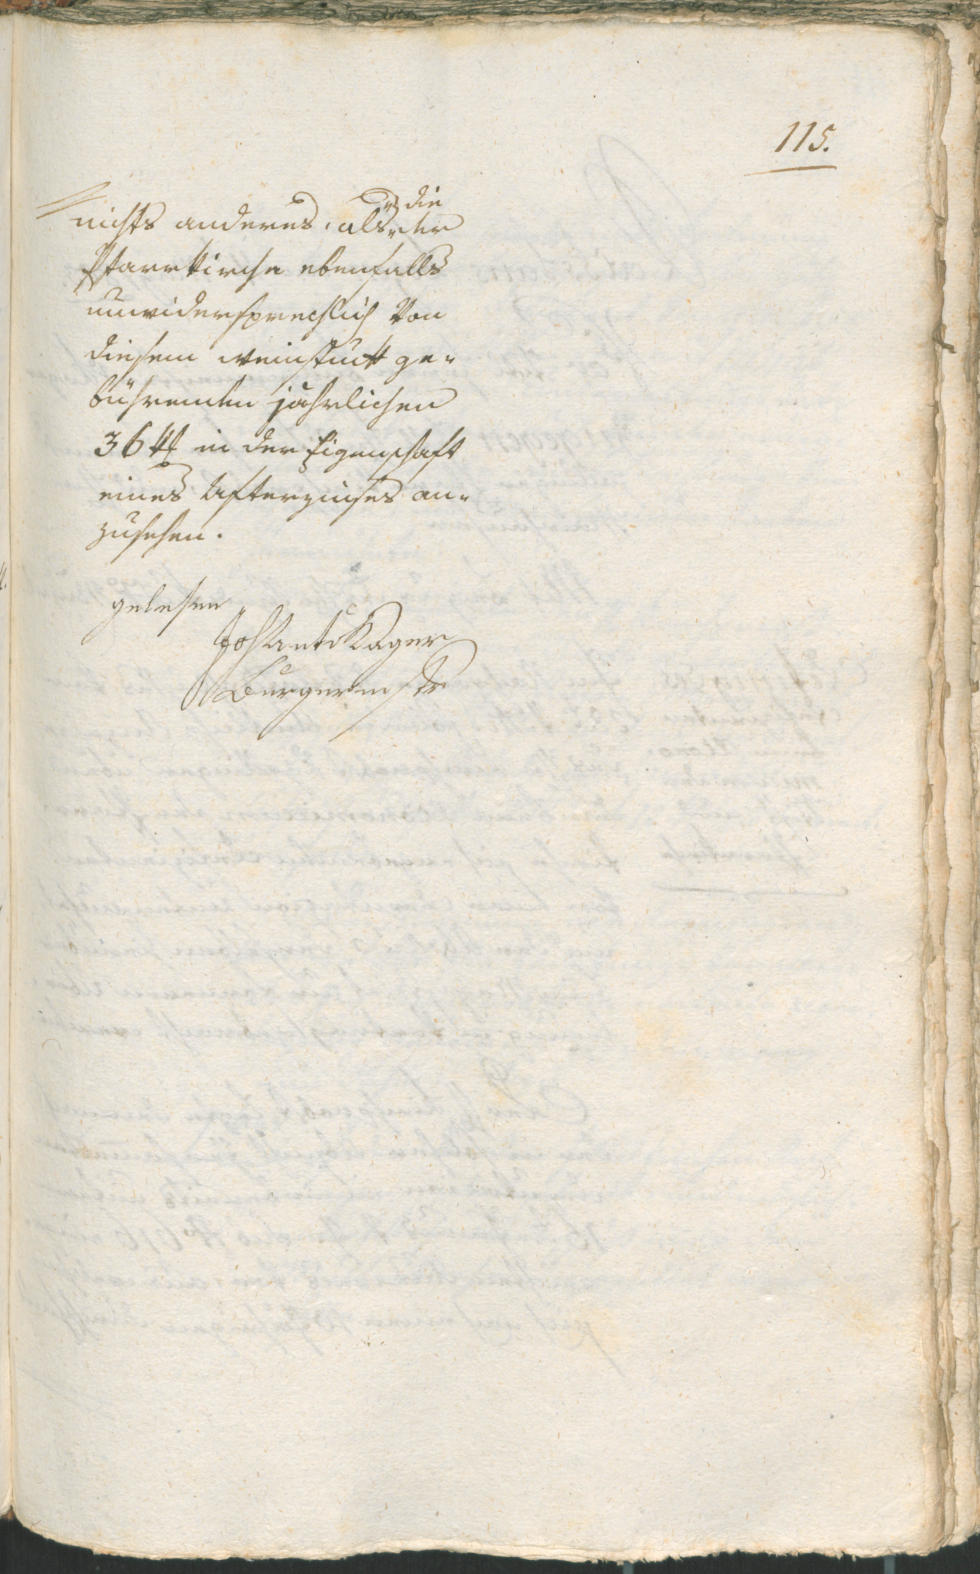 115.
nichts anderes, als die der
Pfarrkirche ebenfalls
unwidersprechlich von
diesem weinstuck ge-
bührenden jährlichen
36 ℔ in der Eigenschaft
eines Afterzinses an-
zusehen.
gelesen
Joh Anto Kager
Burgermstr